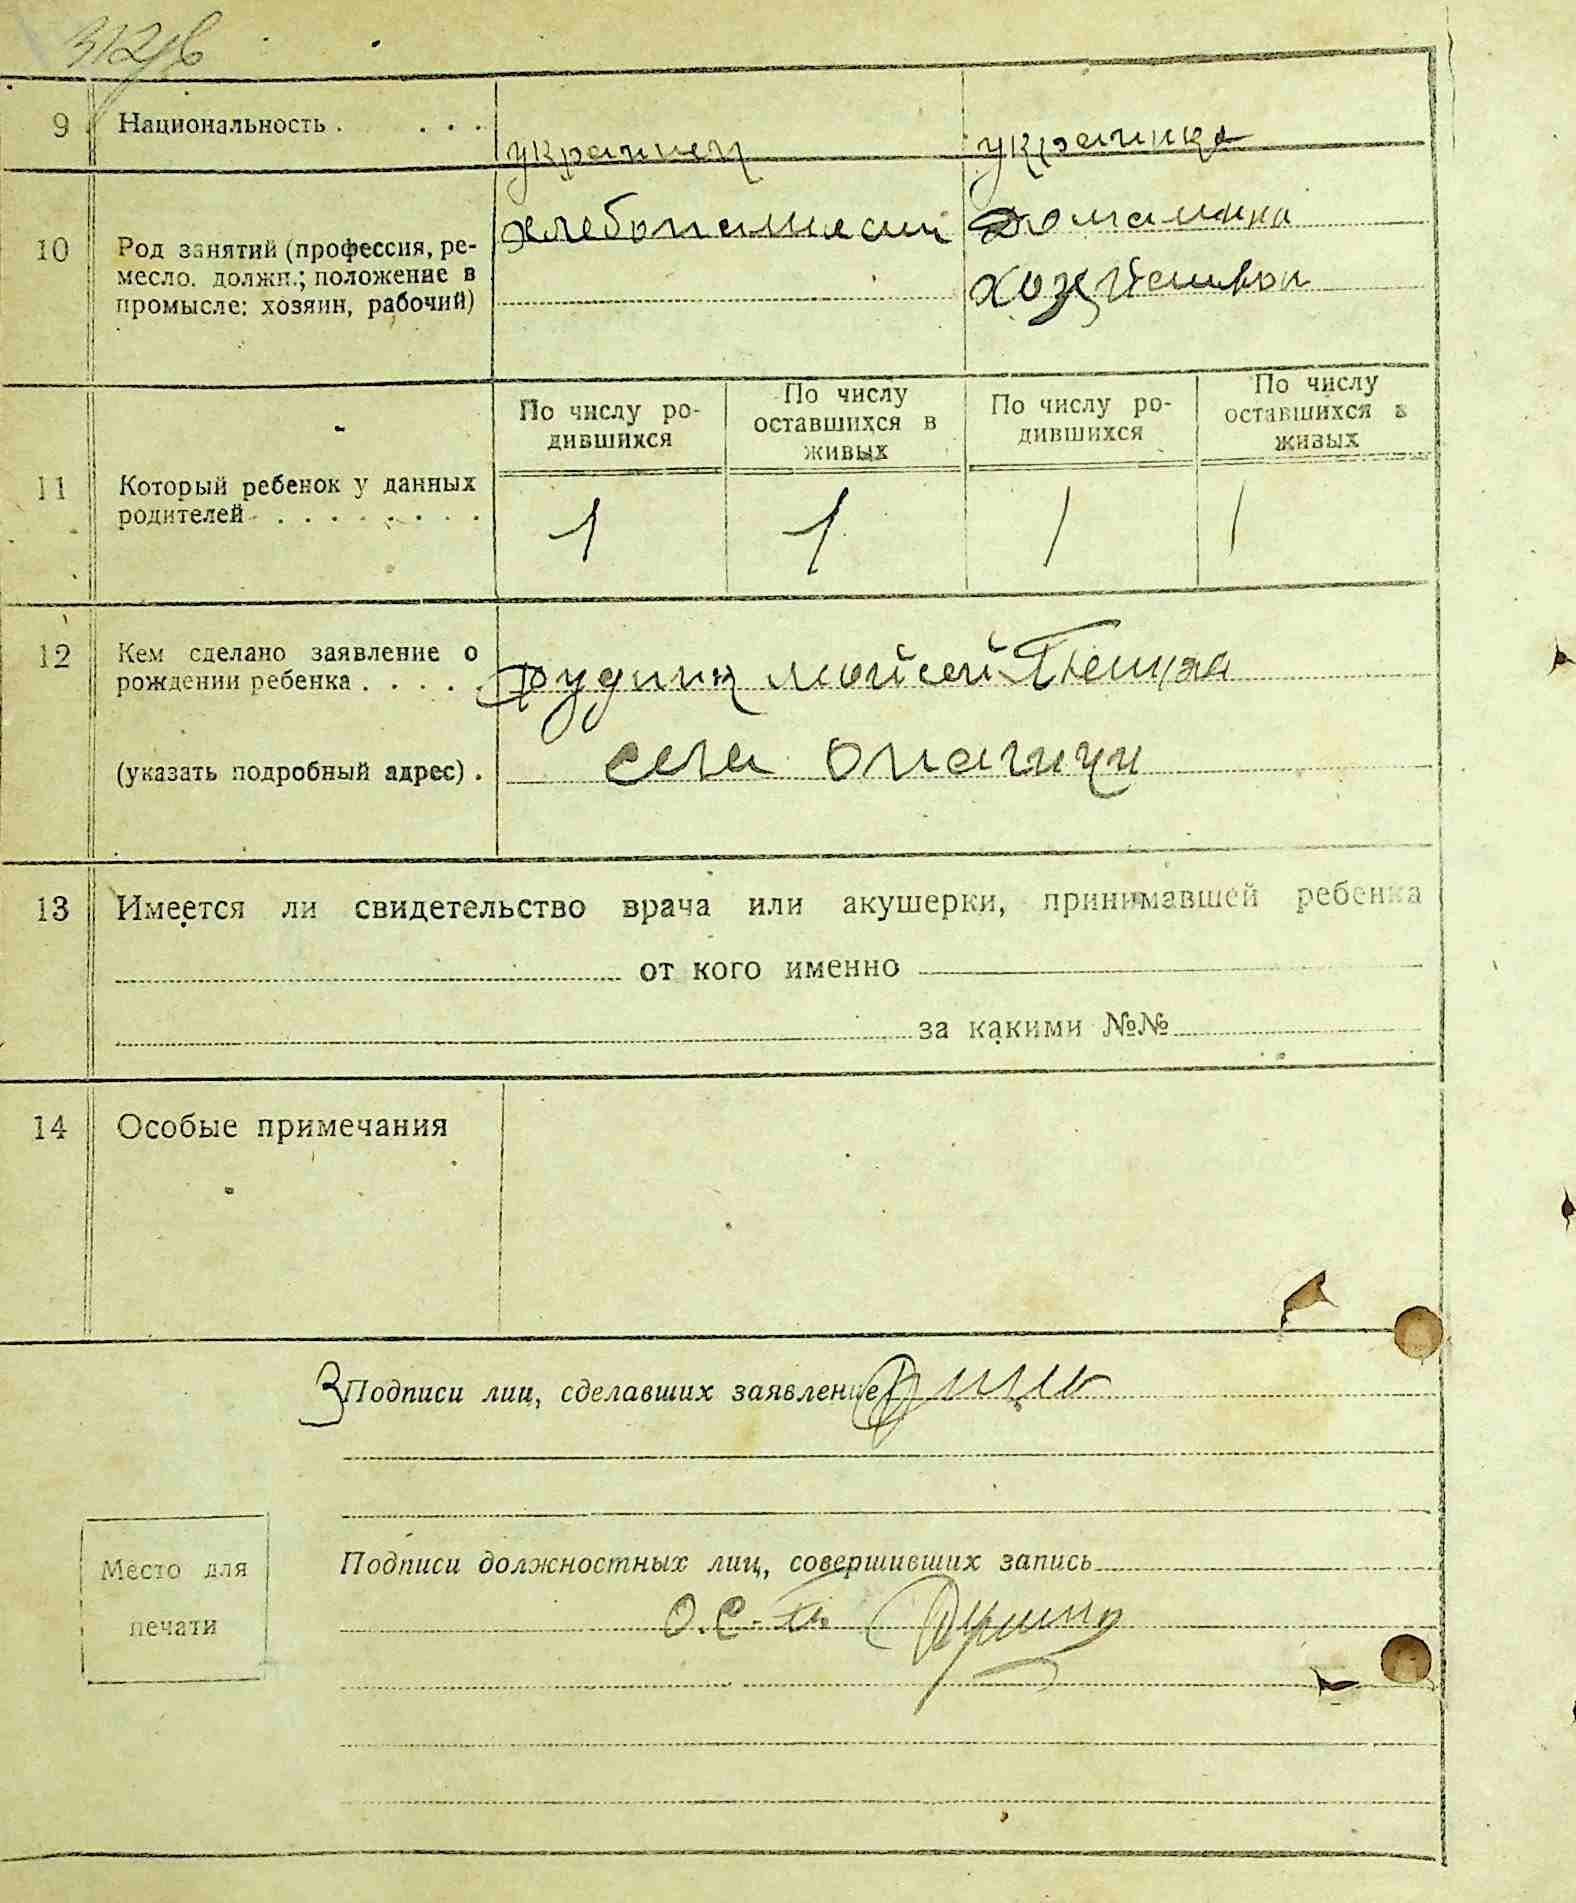 9 Национальность . . . . украинец украинка
10 Род занятий (профессия, ре-
месло, должн.; положение в
промысле: хозяин, рабочий)
хлебопашест
домашня
хозяйством
11 Который ребенок у данных
родителей . . . . . . . .
По числу ро-
дившихся
По числу
оставшихся в
живых
По числу ро-
дившихся
По числу
оставшихся в
живых
1 1 1 1
12 Кем сделано заявление о
рождении ребенка . . . .
Рудник Мойсей
(указать подробный адрес) .
села
13 Имеется ли свидетельство врача или акушерки, принимавшей ребенка
от кого именно
за какими №№
14 Особые примечания
Подписи лиц, сделавших заявление
Место для
печати
Подписи должностных лиц, совершивших запись